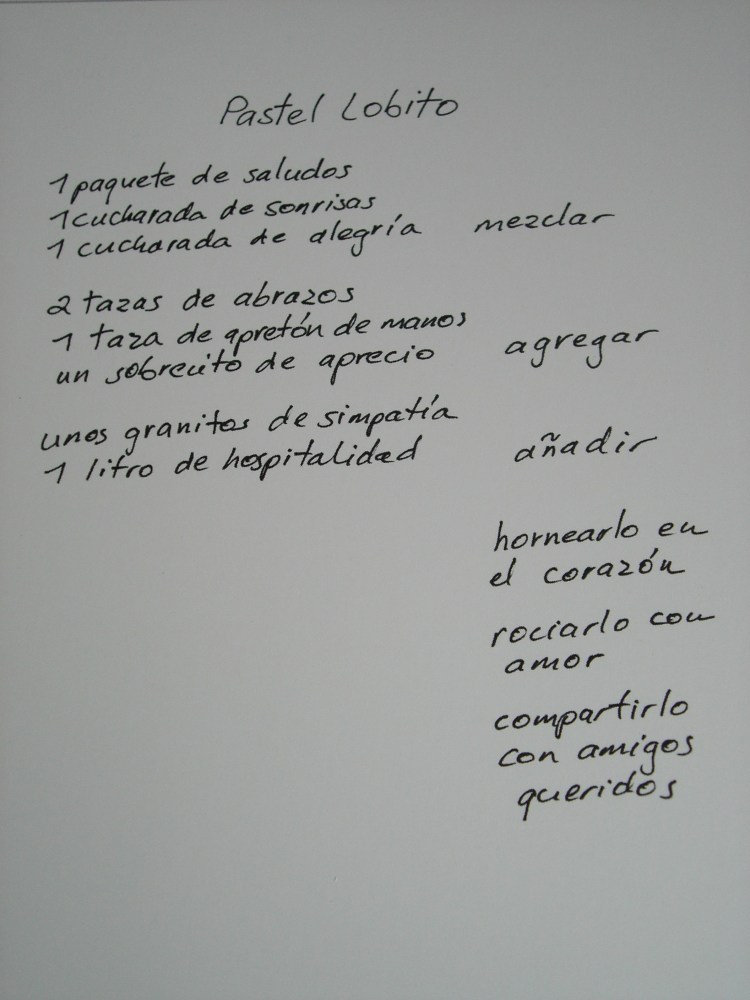 Pastel Lobito
1 paquete de saludos
1 cucharada de sonrisas
1 cucharada de alegría mezclar
2 tazas de abrazos
1 taza de apretón de manos
un sobrecito de aprecio agregar
unos granitos de simpatía
1 litro de hospitalidad añadir
hornearlo en
el corazón
rociarlo con
amor
compartirlo
con amigos
queridos